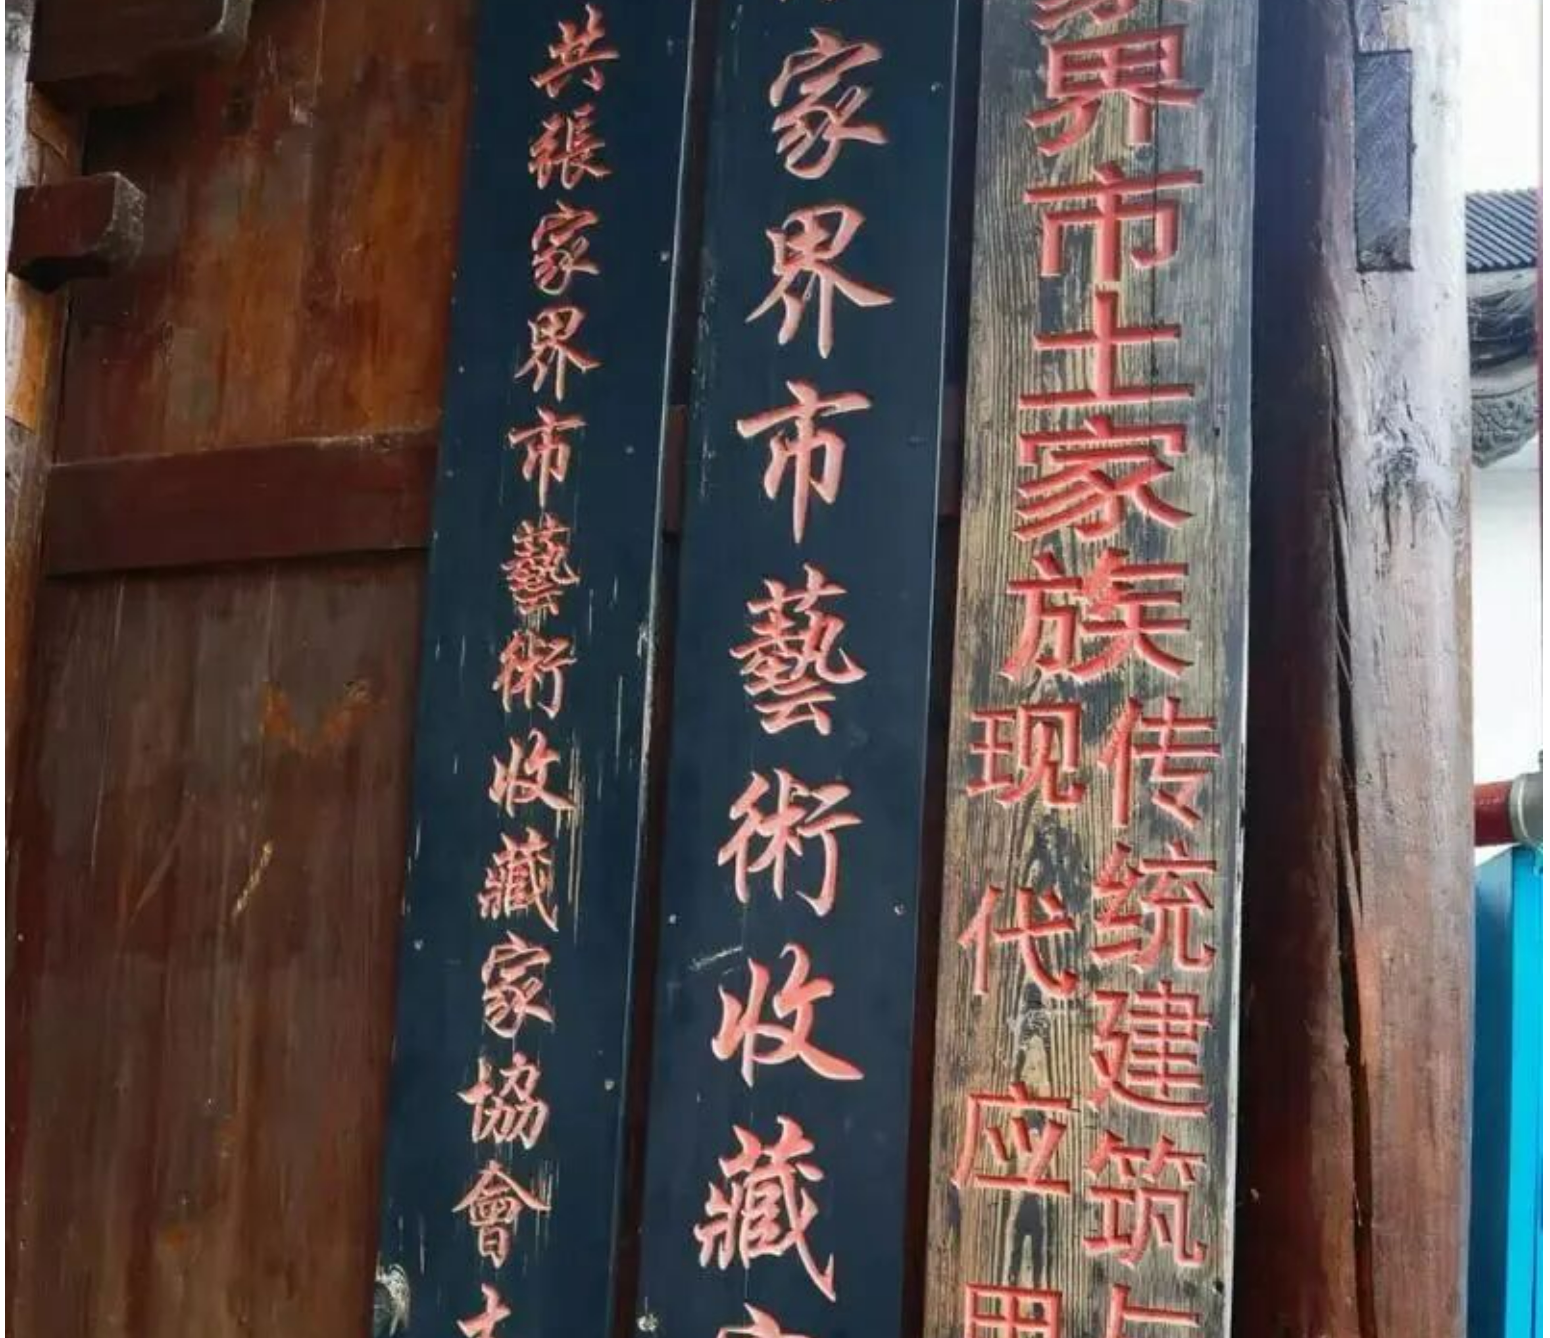 家界市土家族
传统建筑与
现代应用
家界市藝術收藏
共張家界市藝術收藏家協會